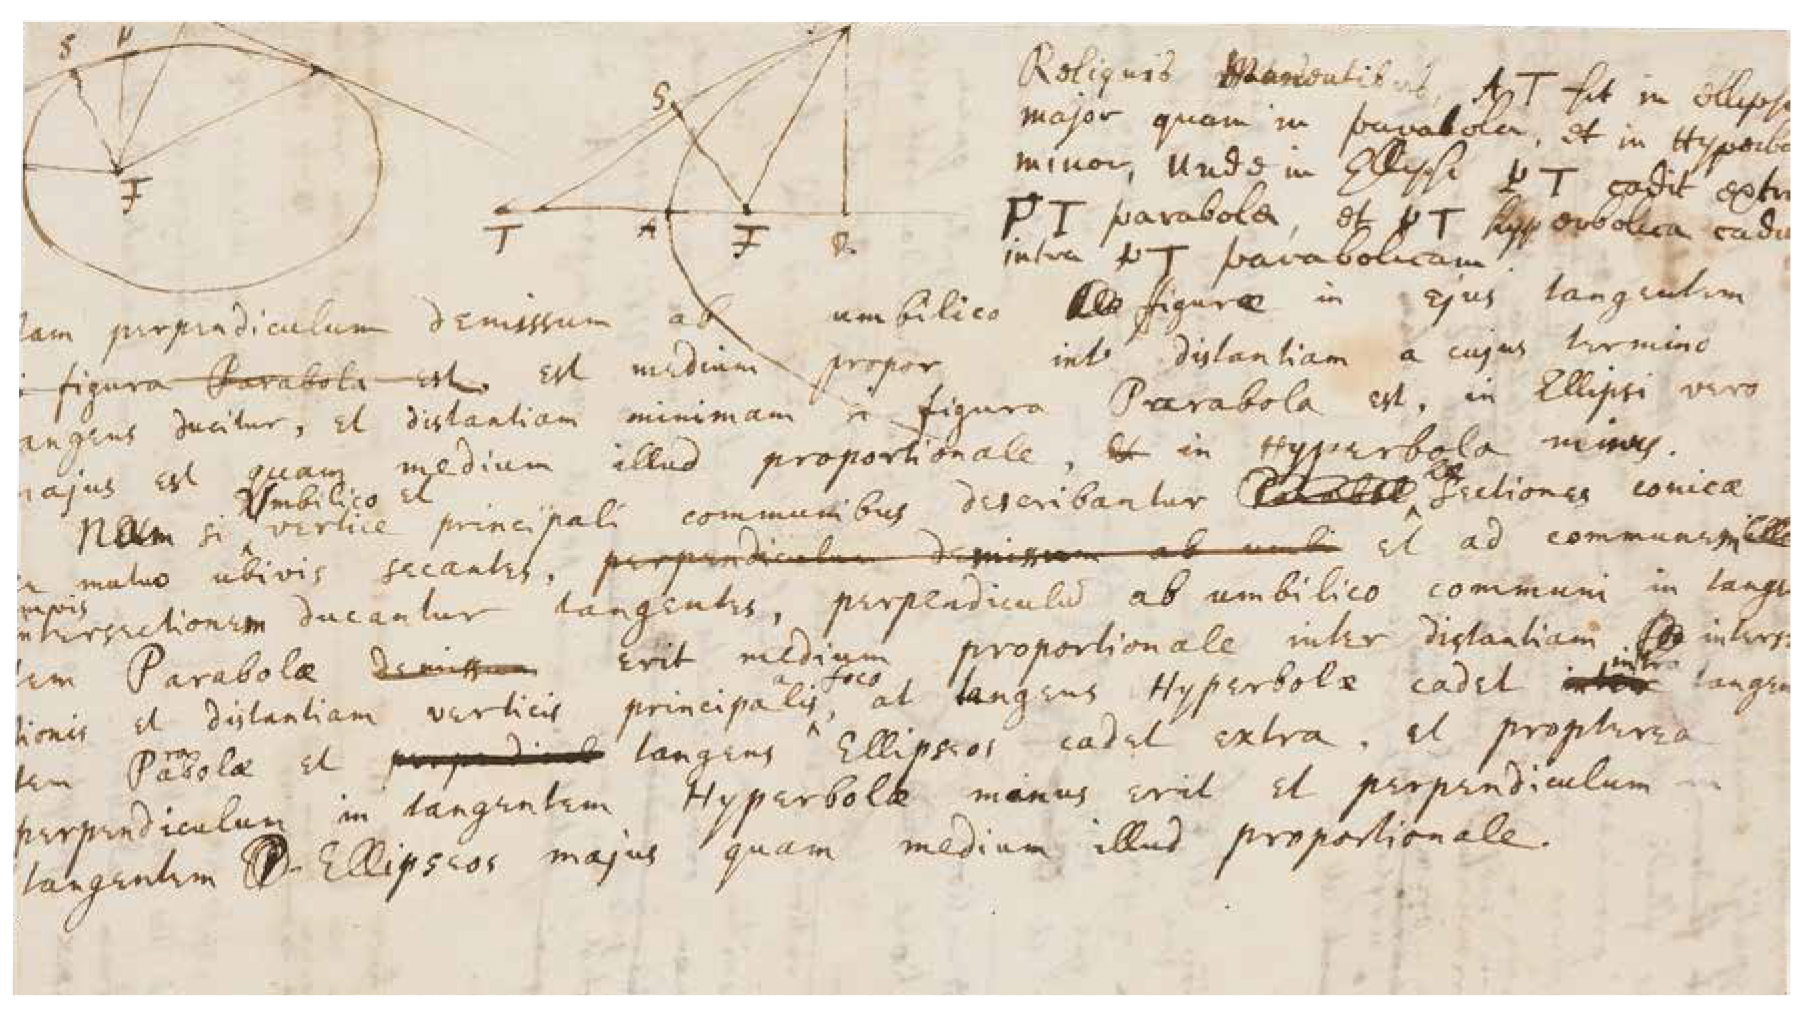 S P
F
S
T A F R
Reliquis manentibus, AT fit in ellipse
major quam in parabola, et in Hyperbo
minor, Unde in Ellipsi PT cadit extr
PT parabola, et PT hyperbolica cadi
intra PT parabolicam.
tam perpendiculum demisssum ab umbilico figuræ in ejus tangentem
figura Parabola est, est medium propor int distantiam a cujus termino
angens ducitur, et distantiam minimam si figura Parabola est, in Ellipsi vero
majus est quam medium illud proportionale, et in Hyperbola minus.
Nam si umbilico et vertice principali communibus describantur Parabol Sectiones conicæ
se mutuo ubivis secantes, perpendiculum demissum ab umbi et ad communem ille
intersectionem ducantur tangentes, perpendiculū ab umbilico communi in tange
tem Parabolæ demissum erit medium proportionale inter distantiam inters
tionis et distantiam verticis principalis a foco, at tangens Hyperbolæ cadet inter intra tangen
tem Parabolæ et perpendicul tangens Ellipseos cadet extra. et propterea
perpendiculum in tangentem Hyperbolæ minus erit et perpendiculum in
tangentem Ellipseos majus quam medium illud proportionale.